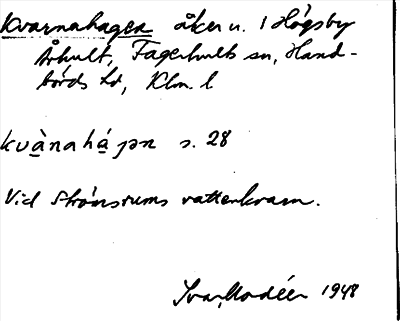 Kvarnahagen åker u. 1 Högsby
Århult, Fagerhults sn, Hand-
börds hd, Klm. l
kvànahá gən s. 28
Vid Strömsrums vattenkvarn.
Ivar Modéer 1948